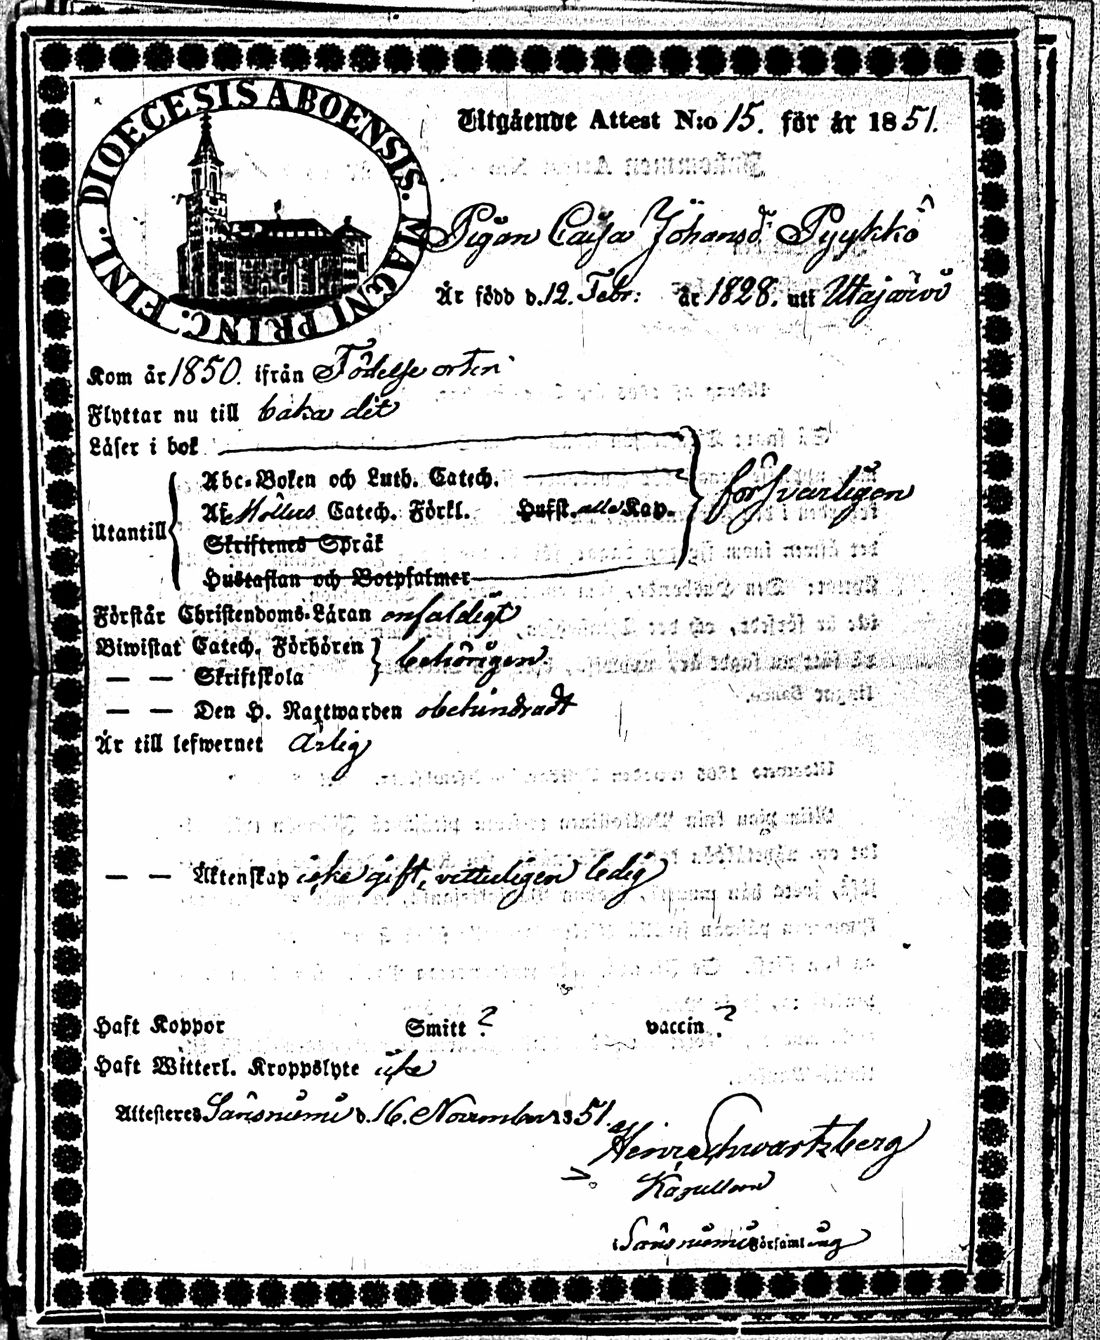 DIOECESIS ABOENSIS. MAGNI PRINC. FINL.
Utgående Attest N:o 15. för år 1851.
Pigan Caisa Johansd:r Pyykkö
Är född d. 12. Febr: år 1828. uti Utajärvi
Kom år 1850. ifrån Födelse orten
Flyttar nu till baka dit
Läser i bok
Abc-Boken och Luth. Catech.
Utantill Af Möllers Catech. Förkl. Hufst. alla Kap. försvarligen
Skriftenes Språk
Hustaflan och Botpsalmer
Förstår Christendoms-Läran enfaldigt
Biwistat Catech. Förhören
behörigen.
— — Skriftskola
— — Den H. Nattwarden obehindradt
Är till lefwernet Ärlig
— — Äktenskap icke gift, vitterligen ledig
Haft Koppor Smitt ? vaccin ?
Haft Witterl. Kroppslyte icke
Attesteras Saarisniemi d. 16. November 1851.
Henr. Schwartzberg
Kapellan
i Saarisniemi Församling